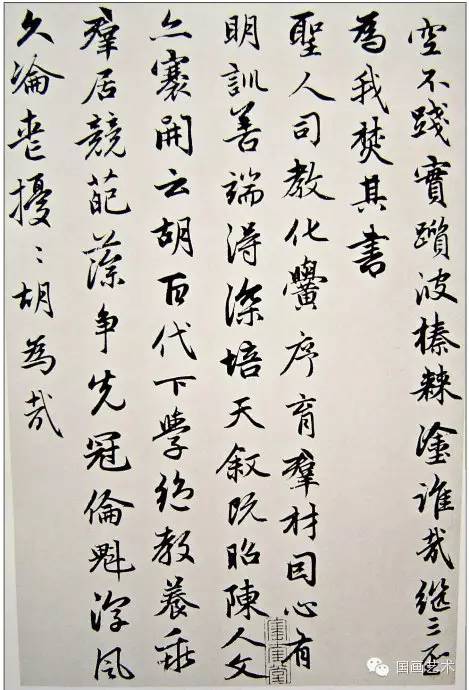 空不踐實躓彼榛棘塗誰哉継三聖
為我焚其書
聖人司教化黌序育羣材因心有
明訓善端得深培天叙既昭陳人文
亦褰開云胡百代下學絕教養乖
羣居競葩藻争先冠倫魁淳風
久淪喪擾〻胡為哉
国画艺术